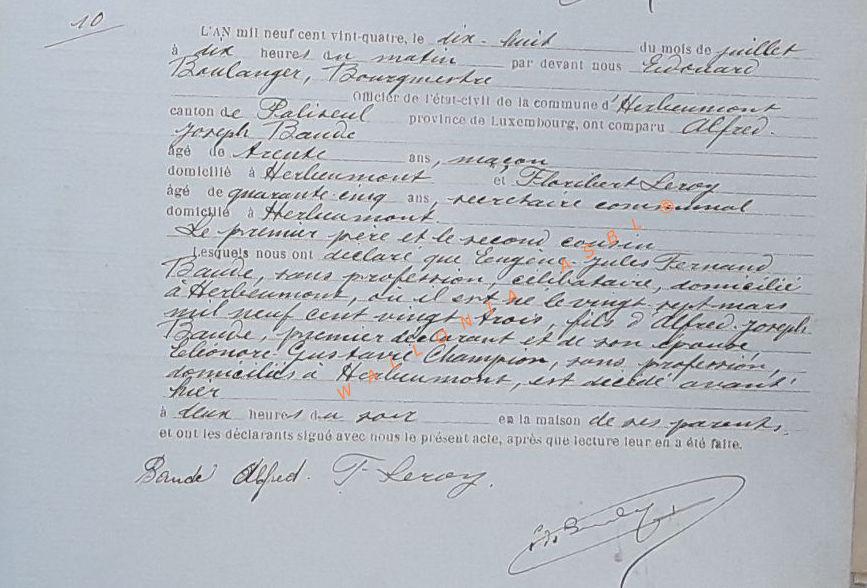 10
L'AN mil neuf cent vint-quatre, le dix-huit du mois de juillet
à dix heures du matin par devant nous Edouard
Boulanger, Bourgmestre
Officier de l'état-civil de la commune d'Herbeumont
canton de Paliseul province de Luxembourg, ont comparu Alfred-
Joseph Baudé
âgé de trente ans, maçon
domicilié à Herbeumont et Floribert Leroy
âgé de quarante-cinq ans, secrétaire communal
domicilié à Herbeumont
Le premier père et le second cousin
Lesquels nous ont déclaré que Eugène Jules Fernand
Baudé, sans profession, célibataire, domicilié
à Herbeumont, où il est né le vingt-sept mars
mil neuf cent vingt trois, fils d'Alfred-Joseph
Baudé, premier déclarant et de son épouse
Eléonore Champion, sans profession,
domiciliés à Herbeumont, est décédé avant
hier
à deux heures du soir en la maison de ses parents,
et ont les déclarants signé avec nous le présent acte, après que lecture leur en a été faite.
Baudé Alfred. F. Leroy.
WALLONIA ASBL ©